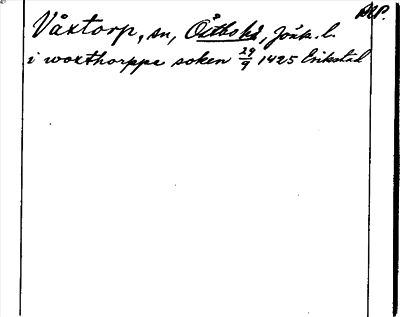 Våxtorp, sn, Östbohd, Jönk. l.
i woxthorppa soken 29/9 1425 Erikstad